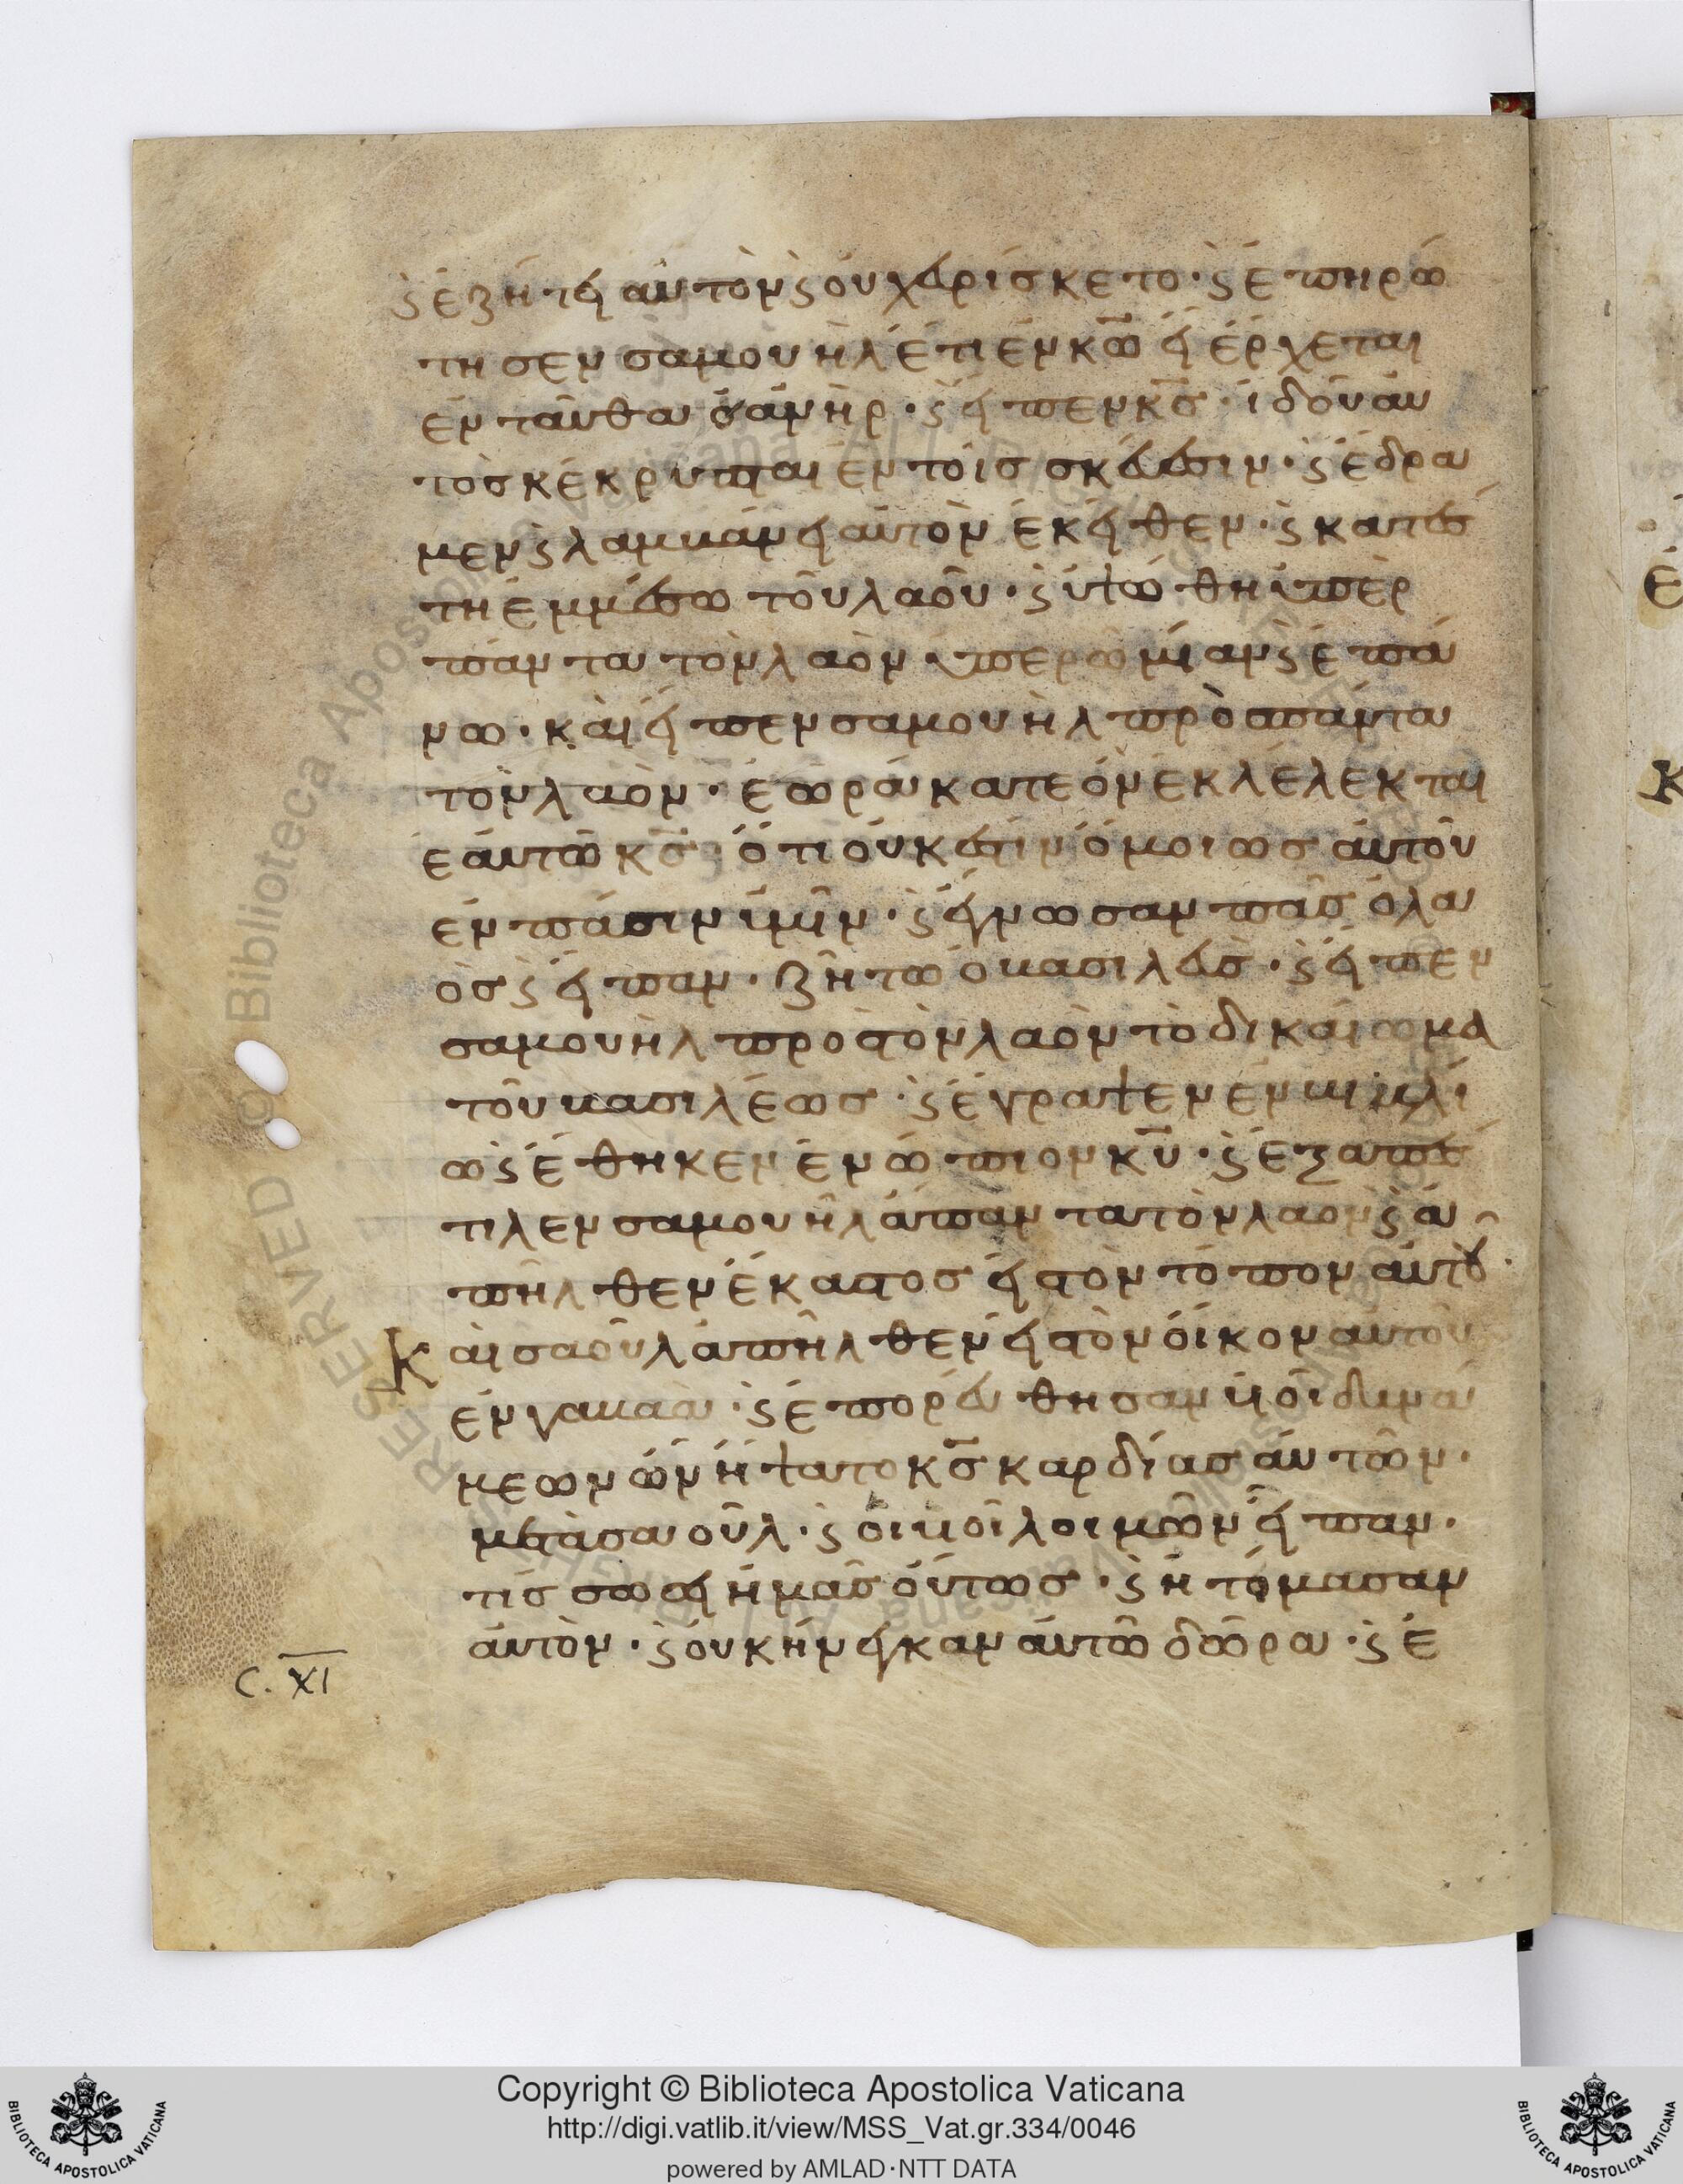 ϗ ἐζήτει αὐτὸν ϗ οὐχ εὑρίσκετο· ϗ ἐπηρώ
τησεν σαμουὴλ ἔτι ἐν κω εἰ ἔρχεται
ἐνταῦθα ὁ ἀνήρ· ϗ εἶπεν κς· ἰδοὺ αὐ
τὸς κέκρυπται ἐν τοῖς σκεύεσιν· ϗ ἔδρα
μεν ϗ λαμβάνει αὐτὸν ἐκεῖθεν· ϗ κατέσ
τη ἐμμέσω τοῦ λαοῦ· ϗ ὑψώθη ὑπὲρ
πάντα τὸν λαὸν ὑπερωμίαν ϗ ἐπά
νω· καὶ εἶπεν σαμουὴλ πρὸς πάντα
τὸν λαὸν· ἑωράκατε ὃν ἐκλέλεκται
ἑαυτῶ κς ὅτι οὐκ ἔστιν ὅμοιος αὐτοῦ
ἐν πάσιν ὑμῖν· ϗ ἔγνωσαν πᾶς ὁ λα
ὸς ϗ εἶπαν· ζήτω ὁ βασιλεύς· ϗ εἶπεν
σαμουὴλ πρὸς τὸν λαὸν τὸ δικαίωμα
τοῦ βασιλέως· ϗ ἔγραψεν ἐν βιβλί
ω ϗ ἔθηκεν ἐνώπιον κυ· ϗ ἐξαπέσ
τιλεν σαμουὴλ ἅπαντα τὸν λαὸν ϗ ἀ
πῆλθεν ἕκαστος εἰς τὸν τόπον αὐτοῦ·
Καὶ σαοὺλ ἀπῆλθεν εἰς τὸν οἶκον αὐτοῦ
ἐν γαβαὰ· ϗ ἐπορεύθησαν υἱοὶ δυνά
μεων ὧν ἥψατο κς καρδίας αὐτῶν·
μετὰ σαούλ· ϗ οἱ υἱοὶ λοιμῶν εἶπαν·
τίς σώσει ἡμᾶς οὕτως· ϗ ἠτίμασαν
αὐτὸν· ϗ οὐκ ἤνεγκαν αὐτῶ δῶρα· ϗ ἐ
C. XI
Copyright © Biblioteca Apostolica Vaticana
http://digi.vatlib.it/view/MSS_Vat.gr.334/0046
powered by AMLAD·NTT DATA
BIBLIOTECA APOSTOLICA VATICANA
BIBLIOTECA APOSTOLICA VATICANA